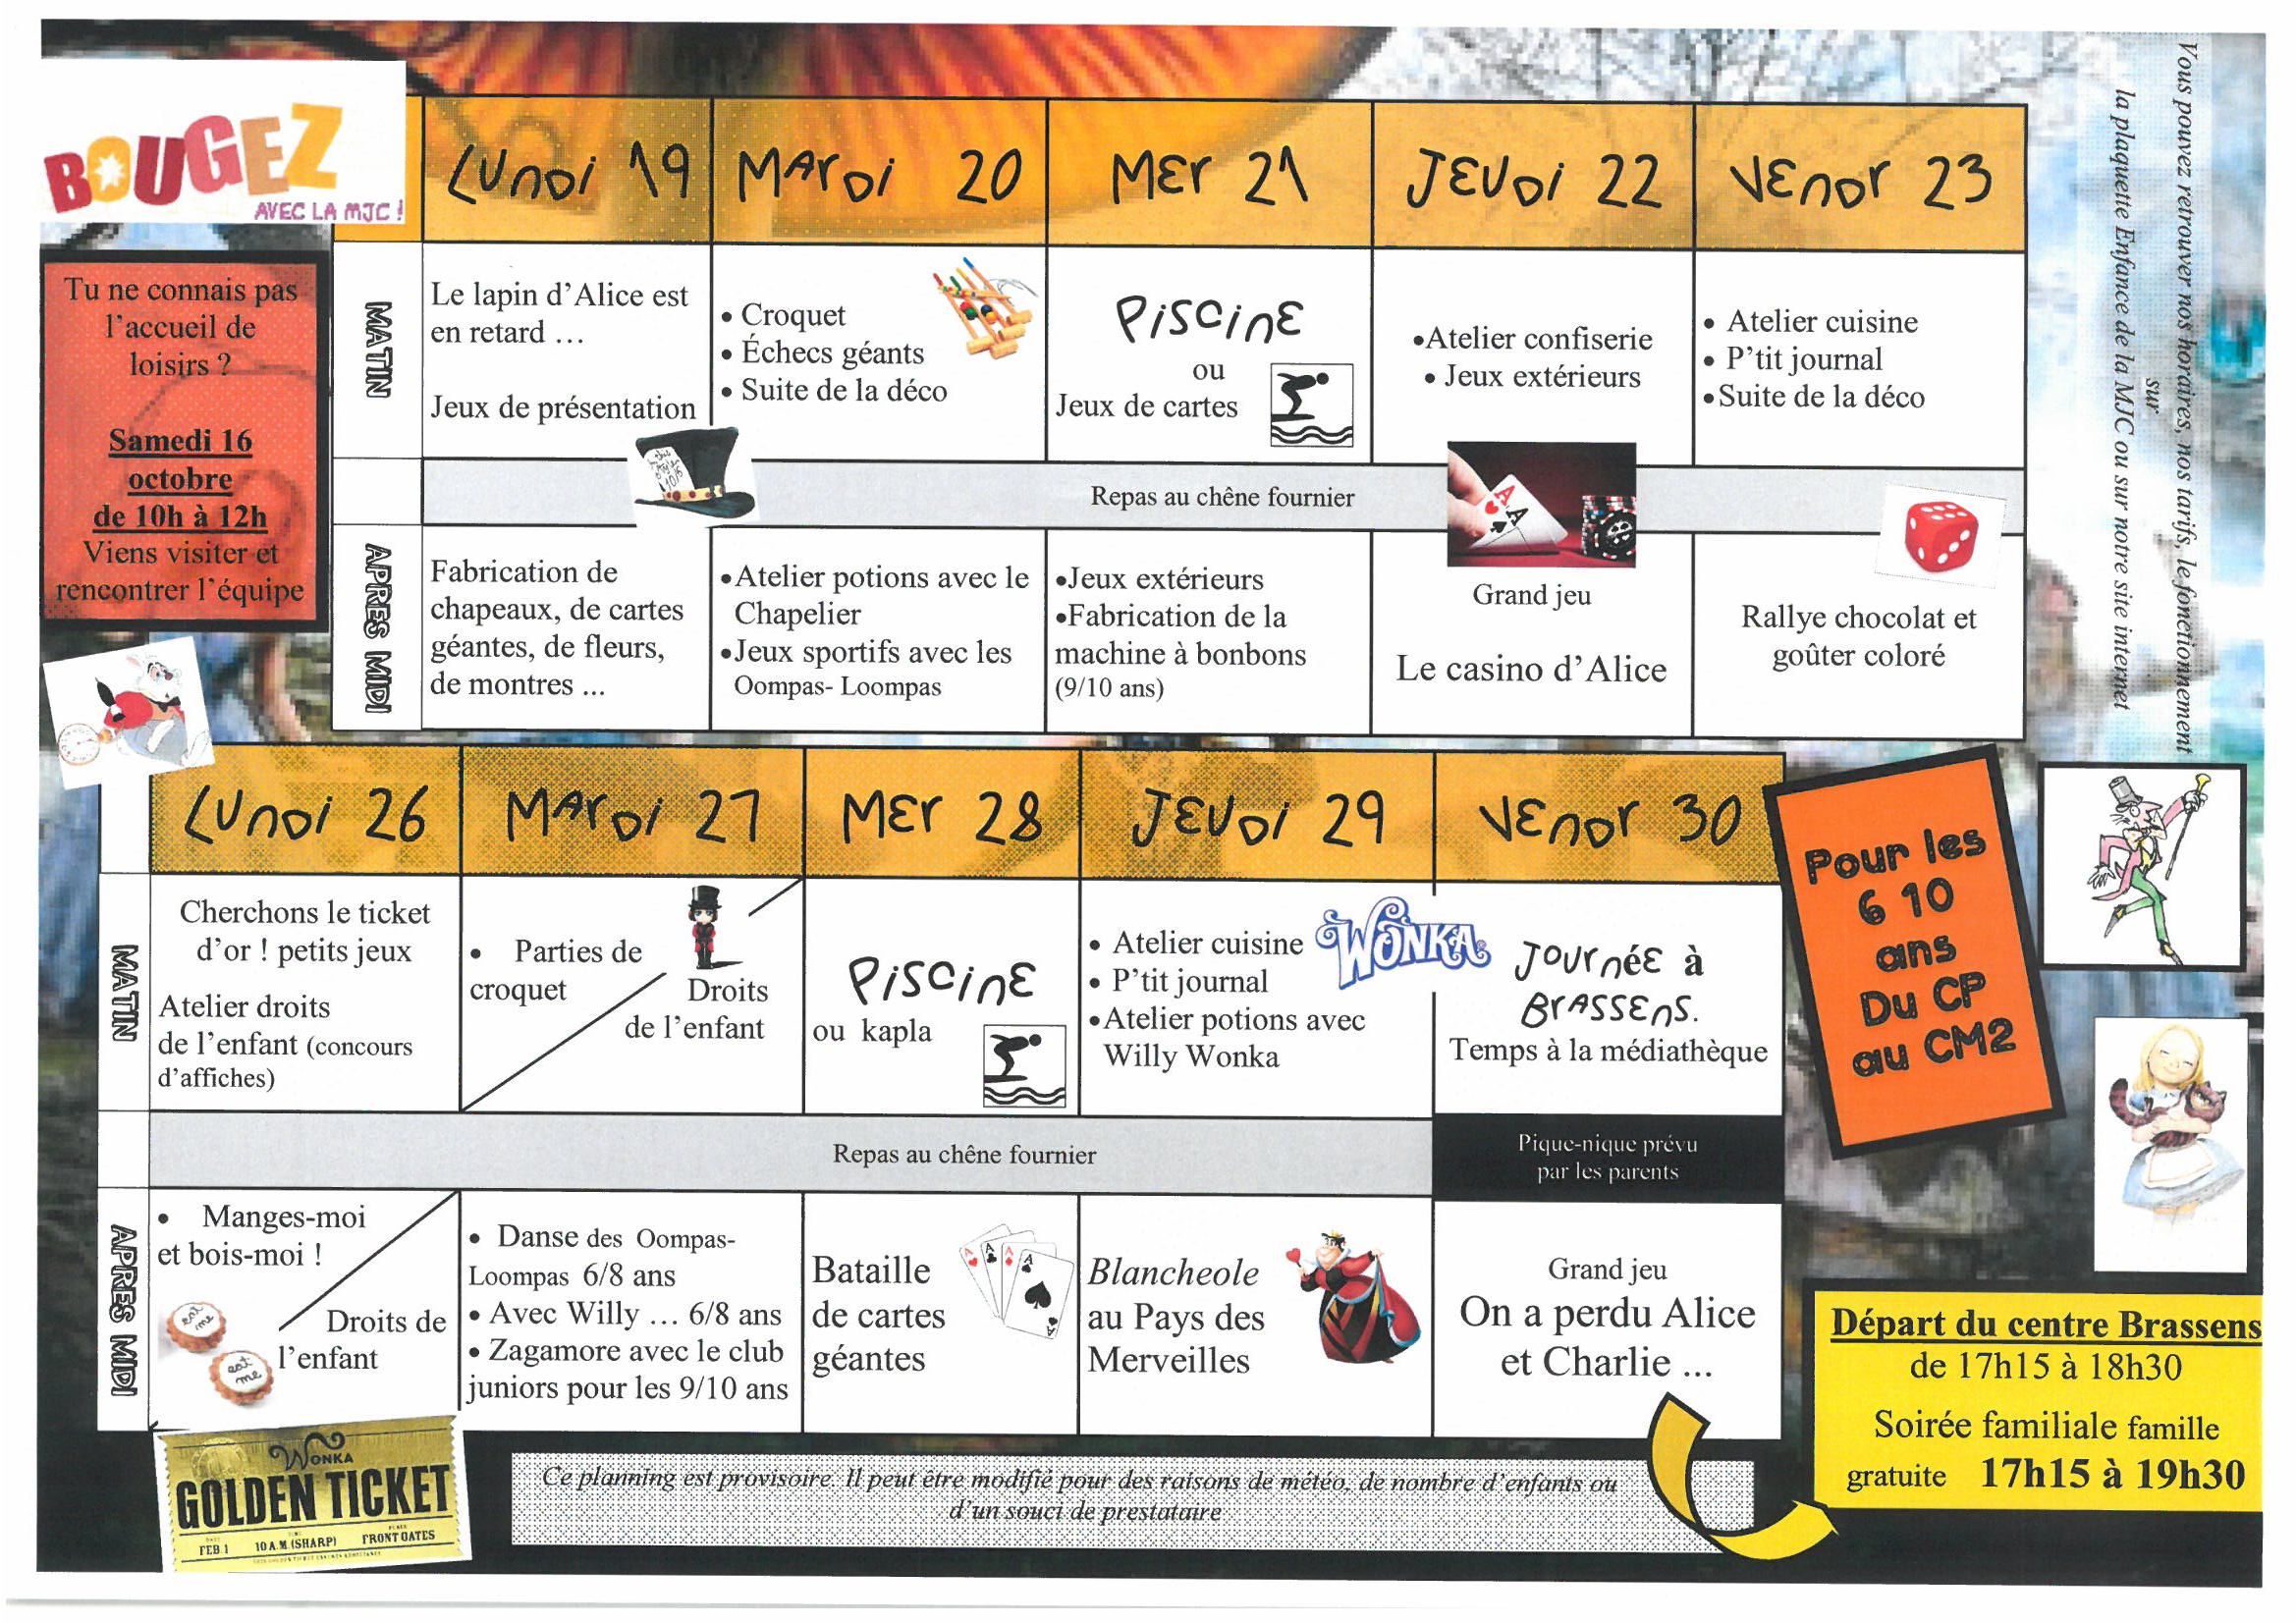 BOUGEZ
AVEC LA MJC !
Tu ne connais pas
l'accueil de
loisirs ?
Samedi 16
octobre
de 10h à 12h
Viens visiter et
rencontrer l'équipe
LUNDI 19
MARDI 20
MER 21
JEUDI 22
VENDR 23
MATIN
Le lapin d'Alice est
en retard ...
Jeux de présentation
• Croquet
• Échecs géants
• Suite de la déco
PISCINE
ou
Jeux de cartes
•Atelier confiserie
• Jeux extérieurs
• Atelier cuisine
• P'tit journal
•Suite de la déco
Repas au chêne fournier
APRES MIDI
Fabrication de
chapeaux, de cartes
géantes, de fleurs,
de montres ...
•Atelier potions avec le
Chapelier
•Jeux sportifs avec les
Oompas- Loompas
•Jeux extérieurs
•Fabrication de la
machine à bonbons
(9/10 ans)
Grand jeu
Le casino d'Alice
Rallye chocolat et
goûter coloré
Vous pouvez retrouver nos horaires, nos tarifs, le fonctionnement
sur
la plaquette Enfance de la MJC ou sur notre site internet
LUNDI 26
MARDI 27
MER 28
JEUDI 29
VENDR 30
MATIN
Cherchons le ticket
d'or ! petits jeux
Atelier droits
de l'enfant (concours
d'affiches)
• Parties de
croquet
Droits
de l'enfant
PISCINE
ou kapla
• Atelier cuisine
• P'tit journal
•Atelier potions avec
Willy Wonka
WONKA
JOURNéE à
BRASSENS.
Temps à la médiathèque
Repas au chêne fournier
Pique-nique prévu
par les parents
APRES MIDI
• Manges-moi
et bois-moi !
eat me
eat me
Droits de
l'enfant
• Danse des Oompas-
Loompas 6/8 ans
• Avec Willy ... 6/8 ans
• Zagamore avec le club
juniors pour les 9/10 ans
Bataille
de cartes
géantes
Blancheole
au Pays des
Merveilles
Grand jeu
On a perdu Alice
et Charlie ...
Pour les
6 10
ans
Du CP
au CM2
Départ du centre Brassens
de 17h15 à 18h30
Soirée familiale famille
gratuite 17h15 à 19h30
WONKA
GOLDEN TICKET
FEB.1 10 A.M. (SHARP) FRONT GATES
Ce planning est provisoire. Il peut être modifié pour des raisons de météo, de nombre d'enfants ou
d'un souci de prestataire